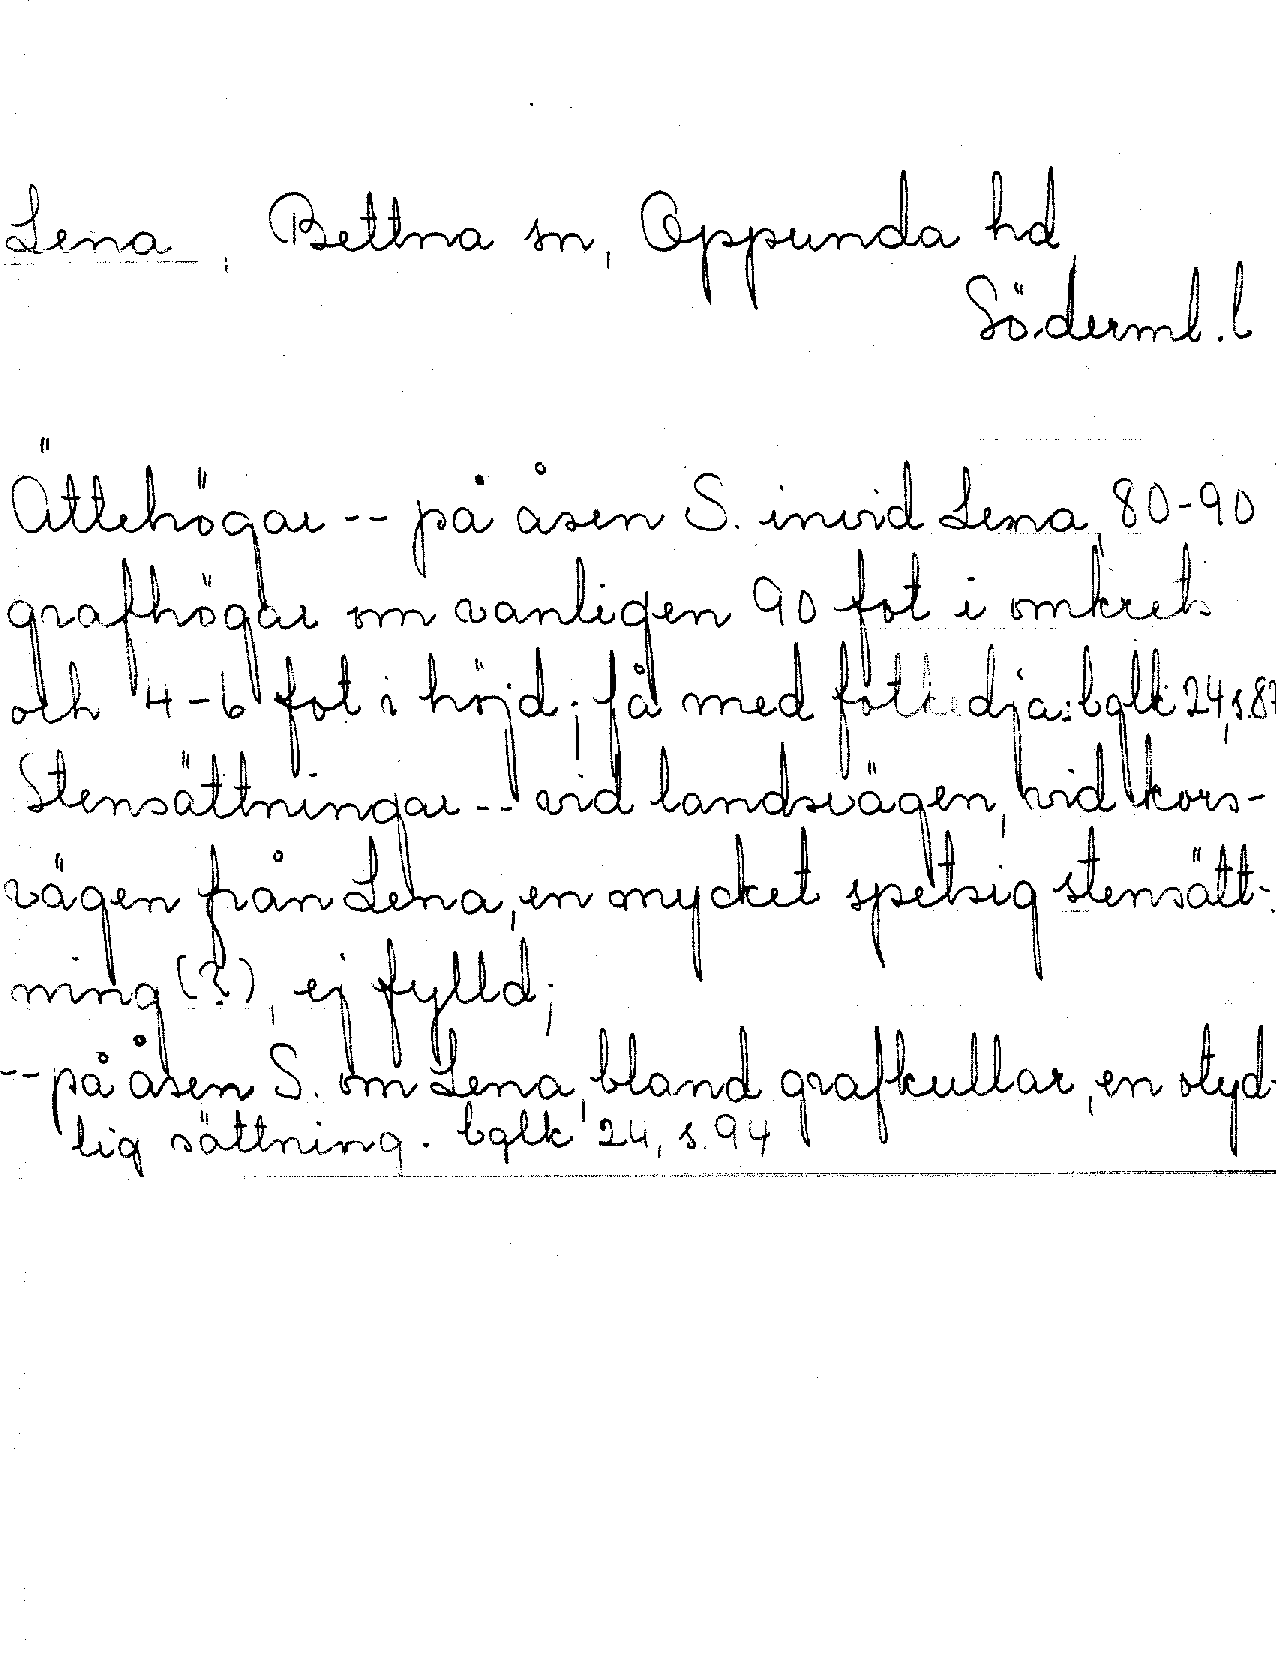 Lena, Bettna sn, Oppunda hd,
Söderml. l
Ättehögar -- på åsen S. invid Lena, 80-90
grafhögar om vanligen 90 fot i omkrets
och 4-6 fot i höjd; få med fotkedja: bglk 24, s.87
Stensättningar -- vid landsvägen, vid kors-
vägen från Lena, en mycket spetsig stensätt-
ning (?), ej fylld;
-- på åsen S. om Lena, bland grafkullar, en otyd-
lig sättning. bglk 24, s. 94